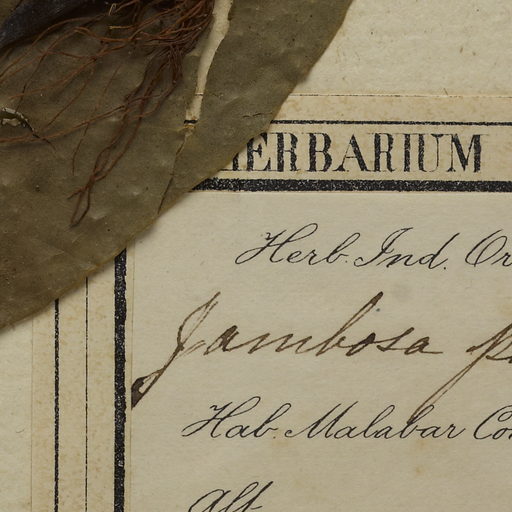 HERBARIUM
Herb. Ind. Or
Jambosa
Hab. Malabar Con
Alt.